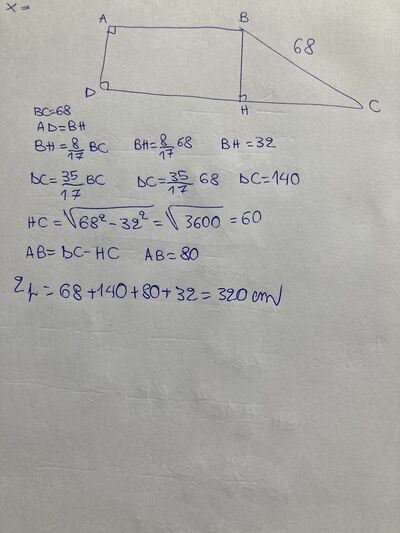 x =
A
B
68
D
H
C
BC=68
AD=BH
BH=8/17 BC BH=8/17 68 BH=32
DC=35/17 BC DC=35/17 68 DC=140
HC=√68²-32² = √3600 = 60
AB=DC-HC AB=80
2p=68+140+80+32=320 cm